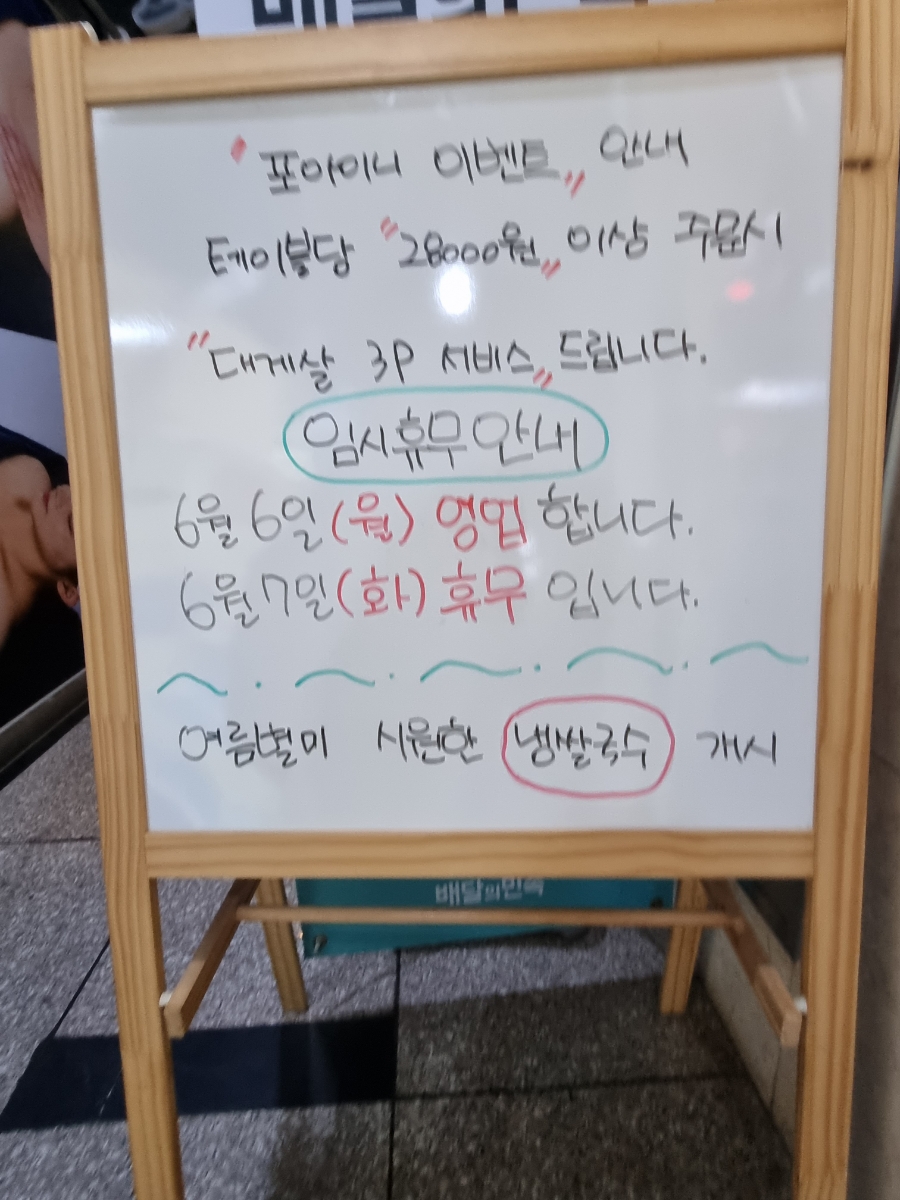 "포아이니 이벤트" 안내
테이블당 "28000원" 이상 주문시
"대게살 3P 서비스" 드립니다.
임시휴무안내
6월 6일(월) 영업 합니다.
6월 7일(화) 휴무 입니다.
여름별미 시원한 냉쌀국수 개시
배달의민족